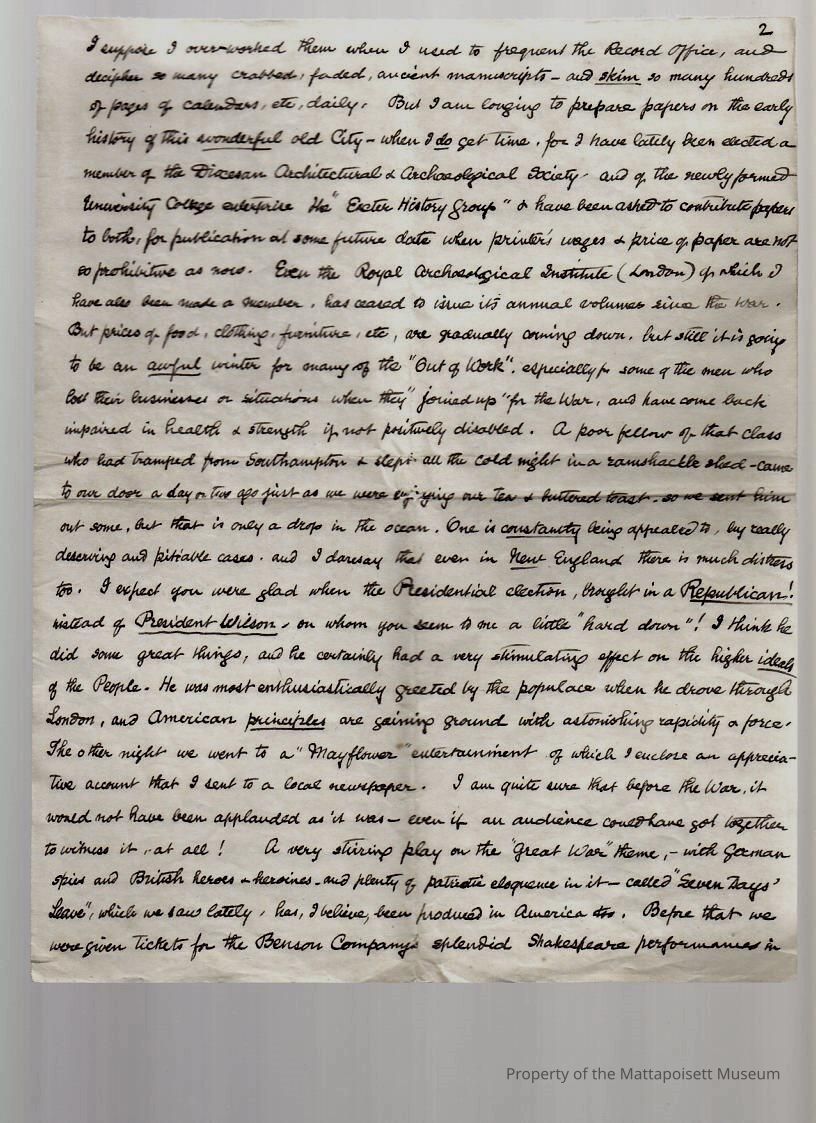 2
I suppose I over-worked them when I used to frequent the Record Office, and
decipher so many crabbed, faded, ancient manuscripts – and skim so many hundreds
of pages of calendars, etc, daily. But I am longing to prepare papers on the early
history of this wonderful old City – when I do get time, for I have lately been elected a
member of the Diocesan Architectural & Archaeological Society – and of the newly formed
University College enterprise the "Exeter History Group" & have been asked to contribute papers
to both, for publication at some future date when printer's wages & price of paper are not
so prohibitive as now. Even the Royal Archaeological Institute (London) of which I
have also been made a member, has ceased to issue its annual volumes since the War.
But prices of food, clothing, furniture, etc, are gradually coming down, but still it is going
to be an awful winter for many of the "Out of Work", especially for some of the men who
lost their businesses or situations when they "joined up" for the War, and have come back
impaired in health & strength if not positively disabled. A poor fellow of that class
who had tramped from Southampton & slept all the cold night in a ramshackle shed – came
to our door a day or two ago just as we were enjoying our tea & buttered toast – so we sent him
out some, but that is only a drop in the ocean. One is constantly being appealed to, by really
deserving and pitiable cases – and I daresay that even in New England there is much distress
too. I expect you were glad when the Presidential election, brought in a Republican!
instead of President Wilson – on whom you seem to me a little "hard down"! I think he
did some great things, and he certainly had a very stimulating effect on the higher ideals
of the People. He was most enthusiastically greeted by the populace when he drove through
London, and American principles are gaining ground with astonishing rapidity & force.
The other night we went to a "Mayflower" entertainment of which I enclose an apprecia-
tive account that I sent to a local newspaper. I am quite sure that before the War, it
would not have been applauded as it was – even if an audience could have got together
to witness it, at all! A very stirring play on the "Great War" theme, – with German
spies and British heroes & heroines – and plenty of patriotic eloquence in it – called "Seven Days'
Leave", which we saw lately, has, I believe, been produced in America too. Before that we
were given tickets for the Benson Company's splendid Shakespeare performances in
Property of the Mattapoisett Museum